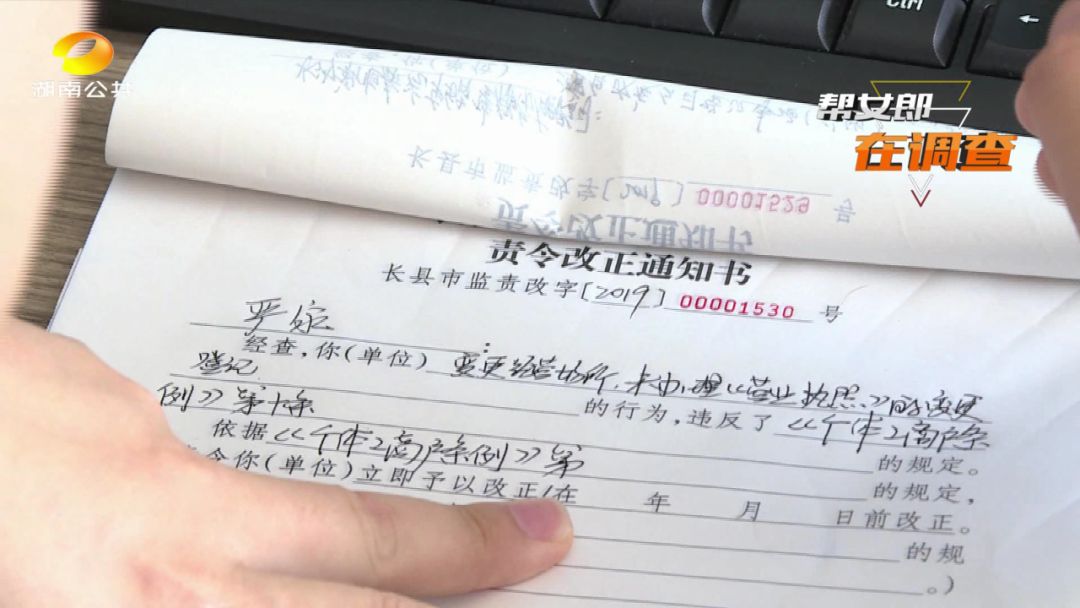 Ctrl
湖南公共
帮女郎
在调查
长县市监责改字〔2019〕00001529号
责令改正通知书
长县市监责改字〔2019〕00001530号
严
经查，你(单位) 变更经营场所，未办理《营业执照》的变更
登记 的行为，违反了《个体工商户条
例》第十条 的规定。
依据《个体工商户条例》第 的规定，
令你(单位)立即予以改正/在 年 月 日前改正。
的规
。)